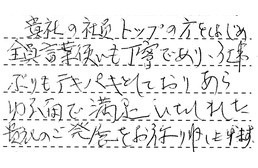 貴社の社員トップの方をはじめ
全員言葉使いも丁寧であり、仕事
ぶりもテキパキとしており あら
ゆる面で満足いたしました
貴社のご発展をお祈り申し上げます